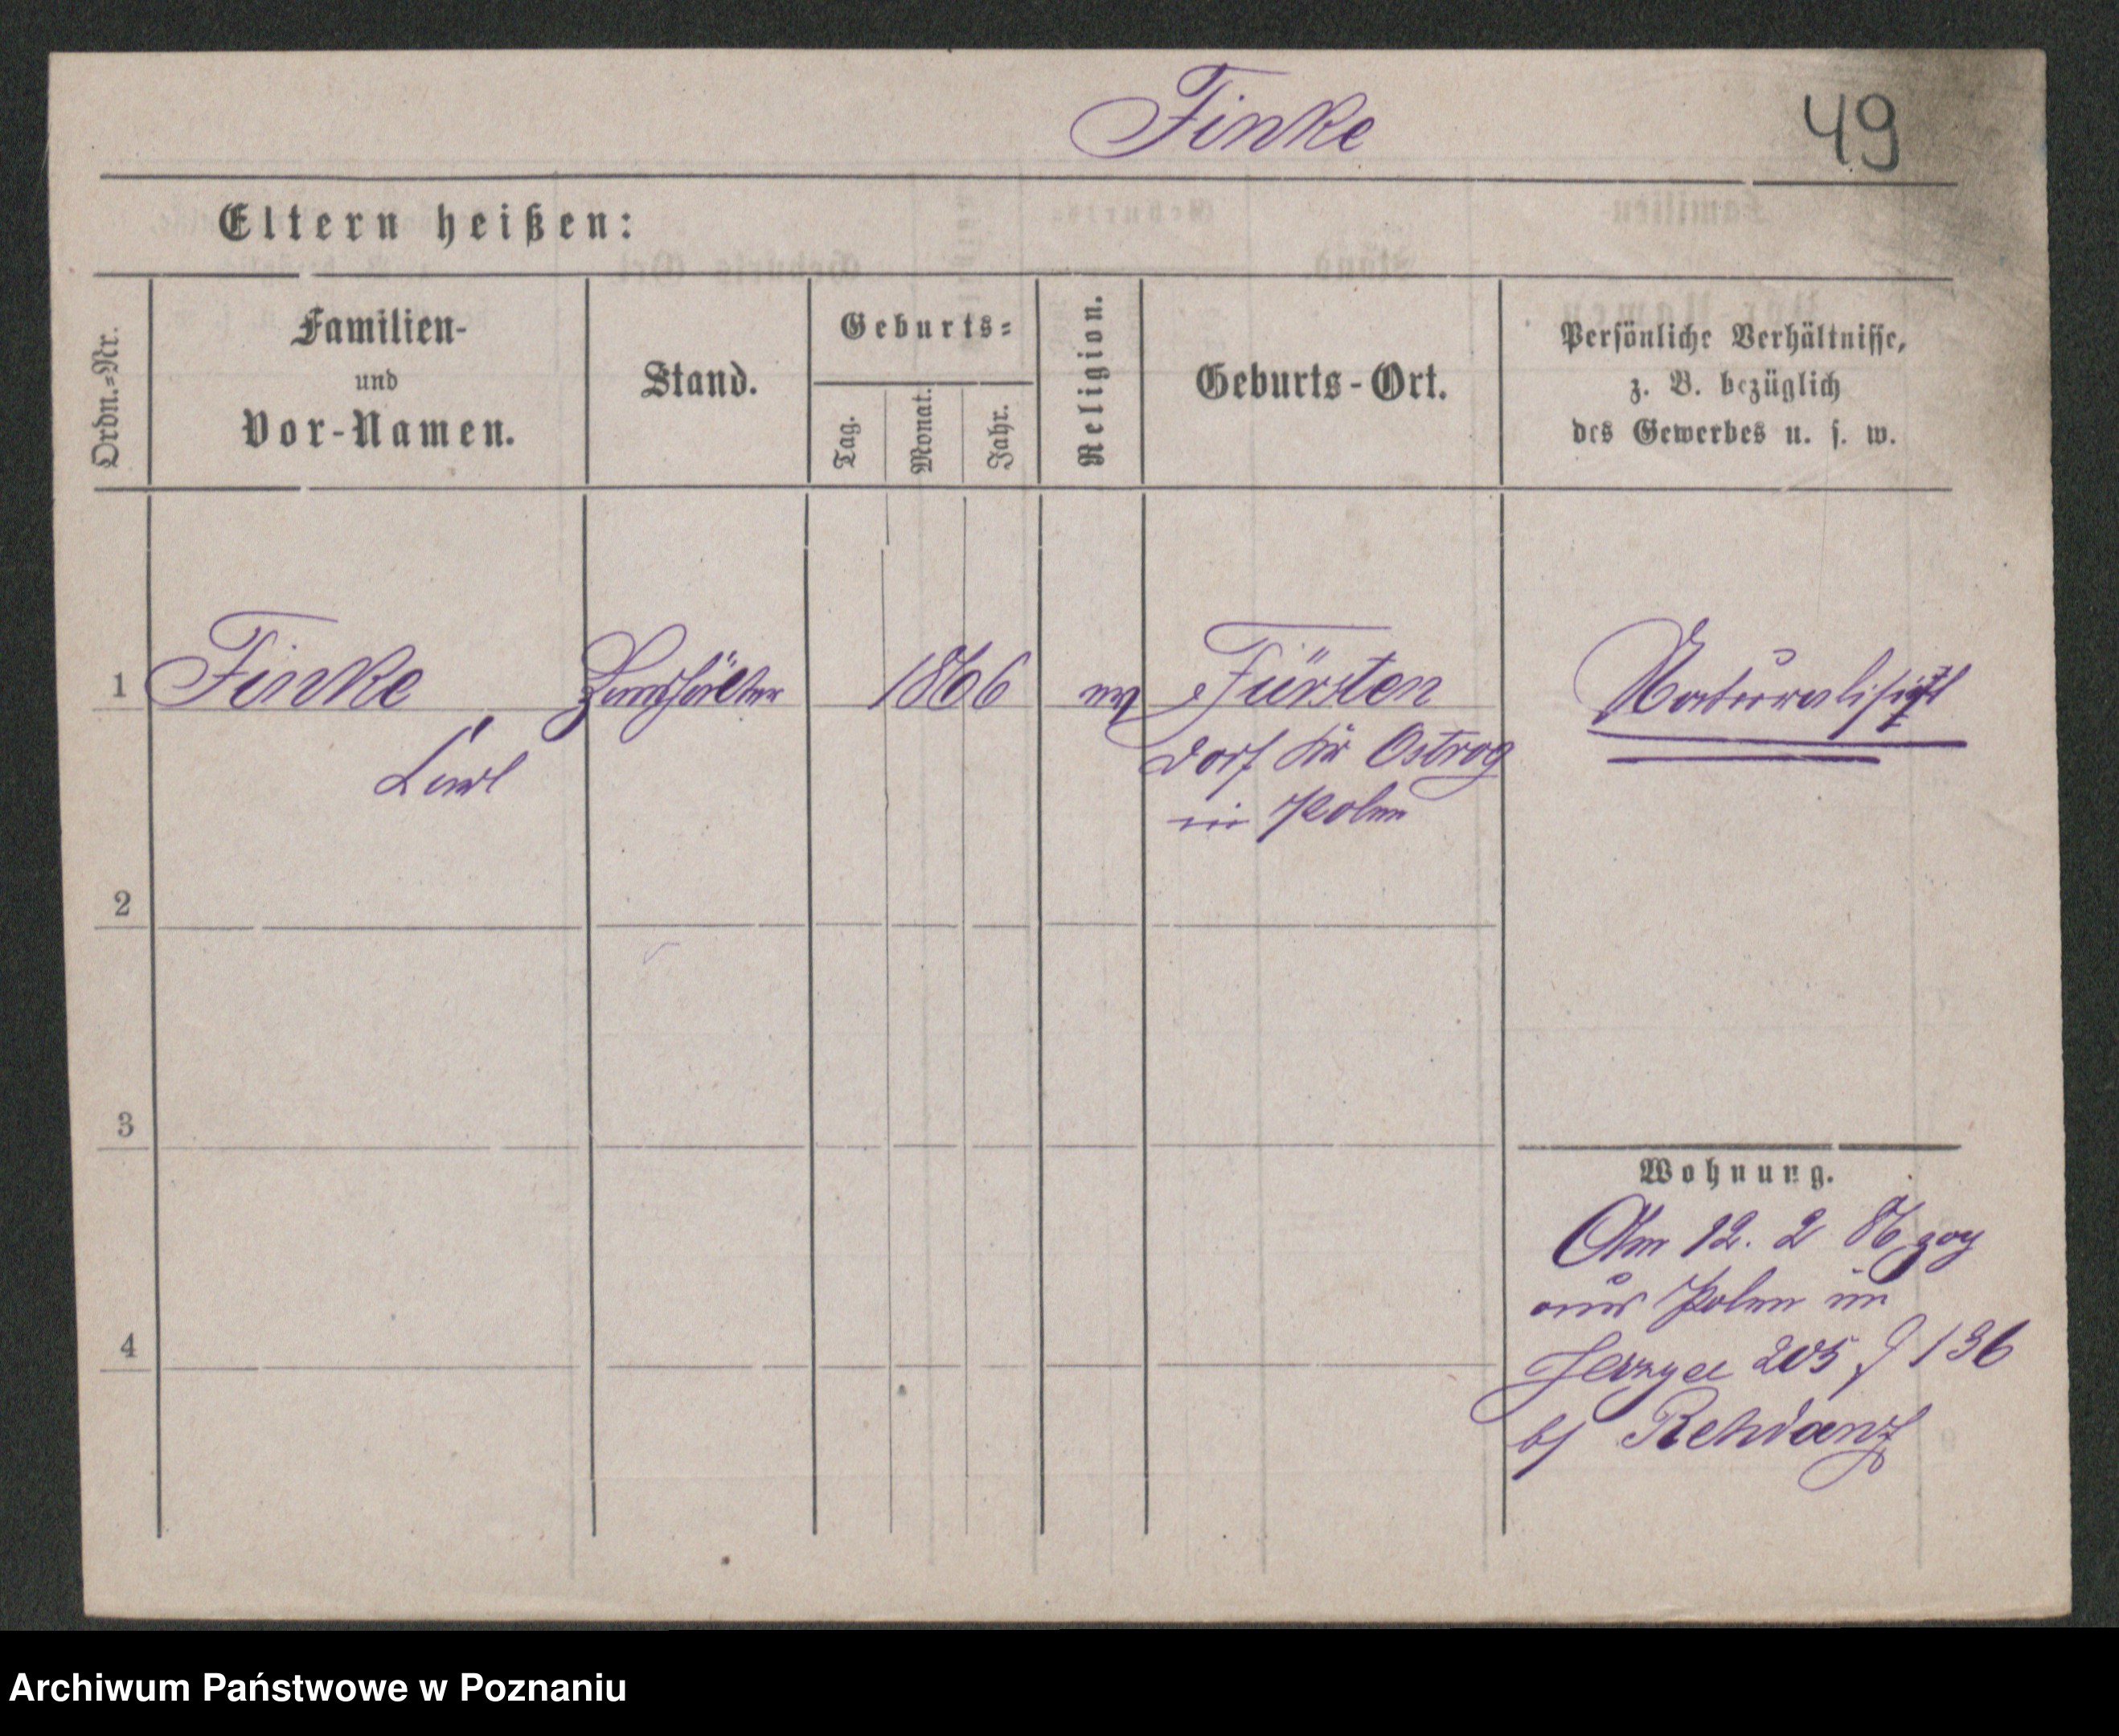 Finke
49
Eltern heißen:
Ordn.=Nr.
Familien-
und
Vor-Namen.
Stand.
Geburts=
Tag.
Monat.
Jahr.
Religion.
Geburts-Ort.
Persönliche Verhältnisse,
z. B. bezüglich
des Gewerbes u. s. w.
1 Finke 1866 ev Fürsten Naturalisirt
dorf Kr Ostrog
in Polen
2
3
4
Wohnung.
Am 12. 2 86 zog
aus Polen in
Jerzyce 205 J 136
bj Rehdanz
Archiwum Państwowe w Poznaniu